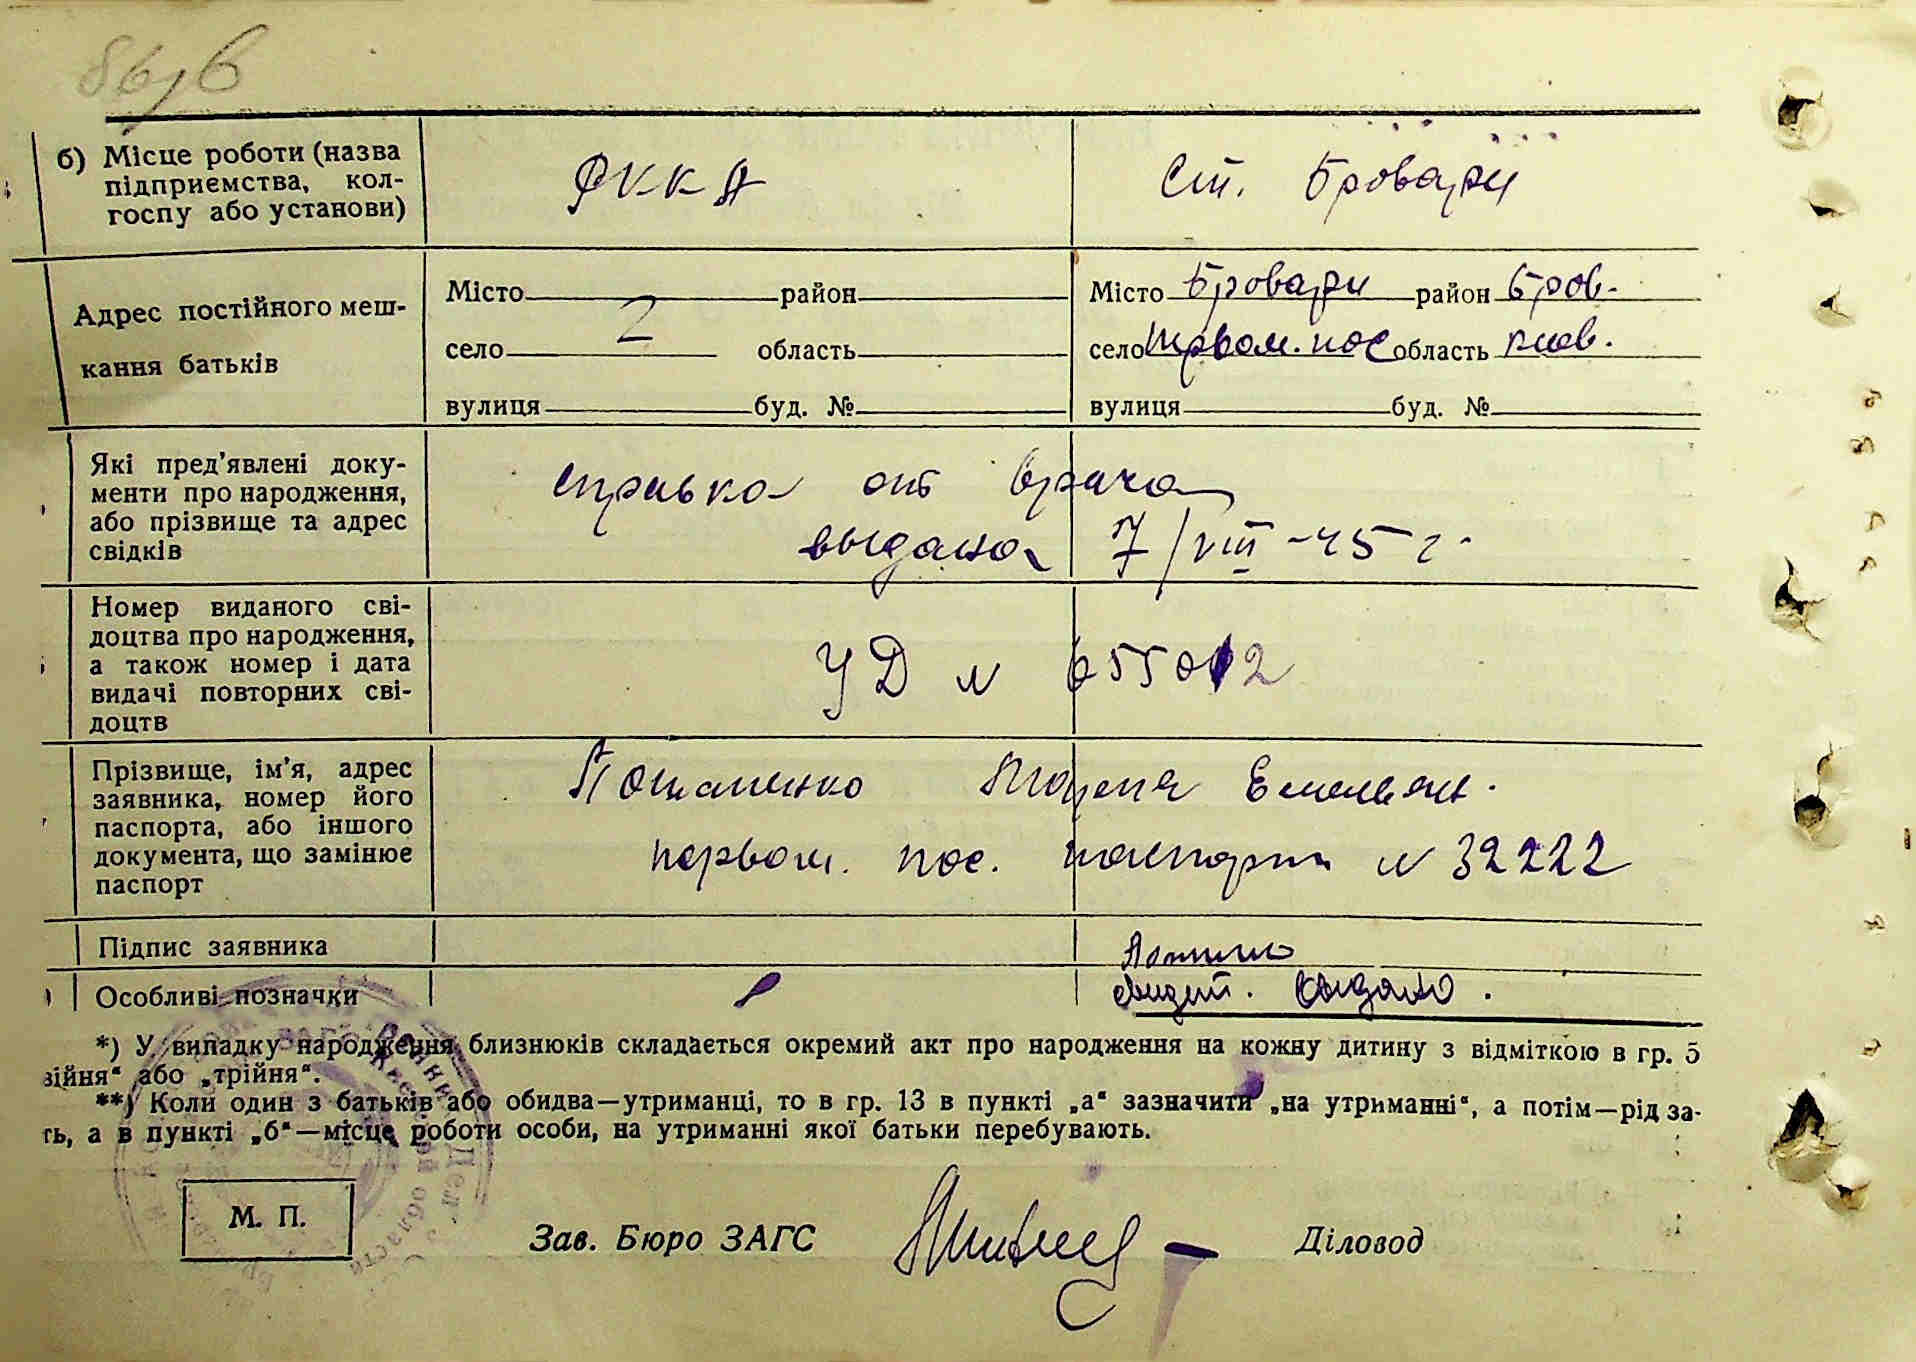 б) Місце роботи (назва
підприємства, кол-
госпу або установи)
РККА
ст. Бровари
Адрес постійного меш-
кання батьків
Місто район
село область
вулиця буд. №
Місто Бровари район Бров.
село Первом. пос область Киев.
вулиця буд. №
Які пред’явлені доку-
менти про народження,
або прізвище та адрес
свідків
справка от врача
выдана 7/VIII-45 г.
Номер виданого сві-
доцтва про народження,
а також номер і дата
видачі повторних сві-
доцтв
УД N 655012
Прізвище, ім’я, адрес
заявника, номер його
паспорта, або іншого
документа, що замінює
паспорт
Потапенко Мария Емельян.
первом. пос. паспорт N 32222
Підпис заявника
Особливі позначки
свидет. выдано.
*) У випадку народження близнюків складається окремий акт про народження на кожну дитину з відміткою в гр. 5
війня“ або „трійня“.
**) Коли один з батьків або обидва—утриманці, то в гр. 13 в пункті „а“ зазначити „на утриманні“, а потім—рід за-
ть, а в пункті „б“—місце роботи особи, на утриманні якої батьки перебувають.
М. П.
Зав. Бюро ЗАГС
Діловод